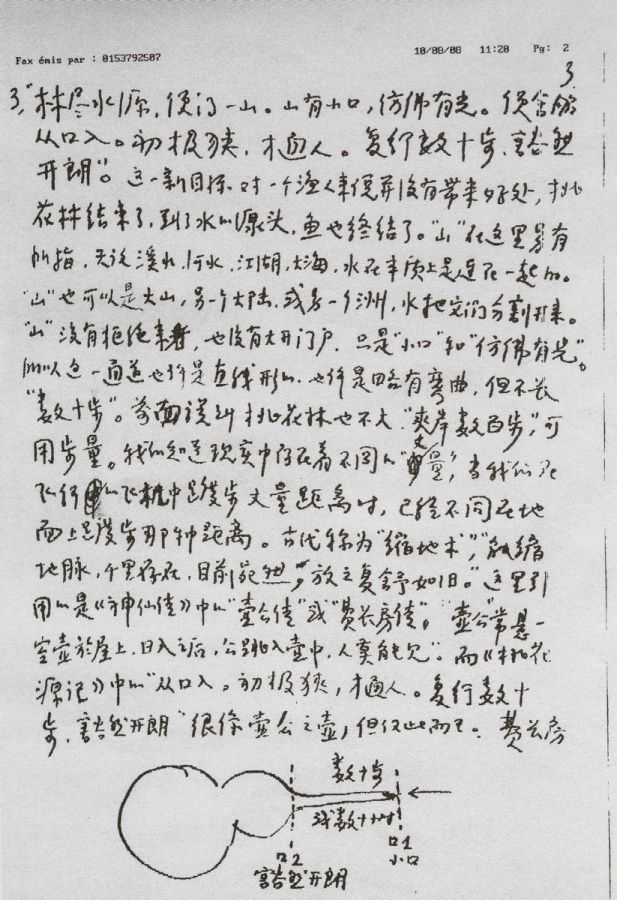 Fax émis par : 0153792507 10/08/08 11:20 Pg: 2
3
3, "林尽水源, 便门一山。山有小口, 仿佛有光。便舍船
从口入。初极狭, 才通人。复行数十步, 豁然
开朗"。这一新目标对一个渔人来说并没有带来好处, 桃
花林结束了, 到了水的源头, 鱼也终结了。"山"在这里另有
所指, 无论溪水, 河水, 江湖, 大海, 水在本质上是连在一起的。
"山"也可以是大山, 另一个大陆, 或另一个洲, 水把它们分割开来。
"山"没有拒绝来者, 也没有大开门户, 只是"小口"和"仿佛有光"。
所以这一通道也许是直线形的, 也许是略有弯曲, 但不长
"数十步"。前面说到桃花林也不大, "夹岸数百步", 可
用步量。我们知道现实中存在着不同的"丈量", 当我们在
飞行的飞机中是漫步丈量距离时, 已经不同在地
面上是漫步那种距离。古代称为"缩地术", "能缩
地脉, 千里存在, 目前宛然, 放之复舒如旧。"这里引
用的是《神仙传》中的"壶公传"或"费长房传"。"壶公"常悬一
空壶於屋上, 日入之后, 公跳入壶中, 人莫能见"。而《桃花
源记》中的"从口入。初极狭, 才通人。复行数十
步, 豁然开朗"很像壶公之壶, 但仅此而已。费长房
数十步
或数十小时
口1
小口
口2
豁然开朗